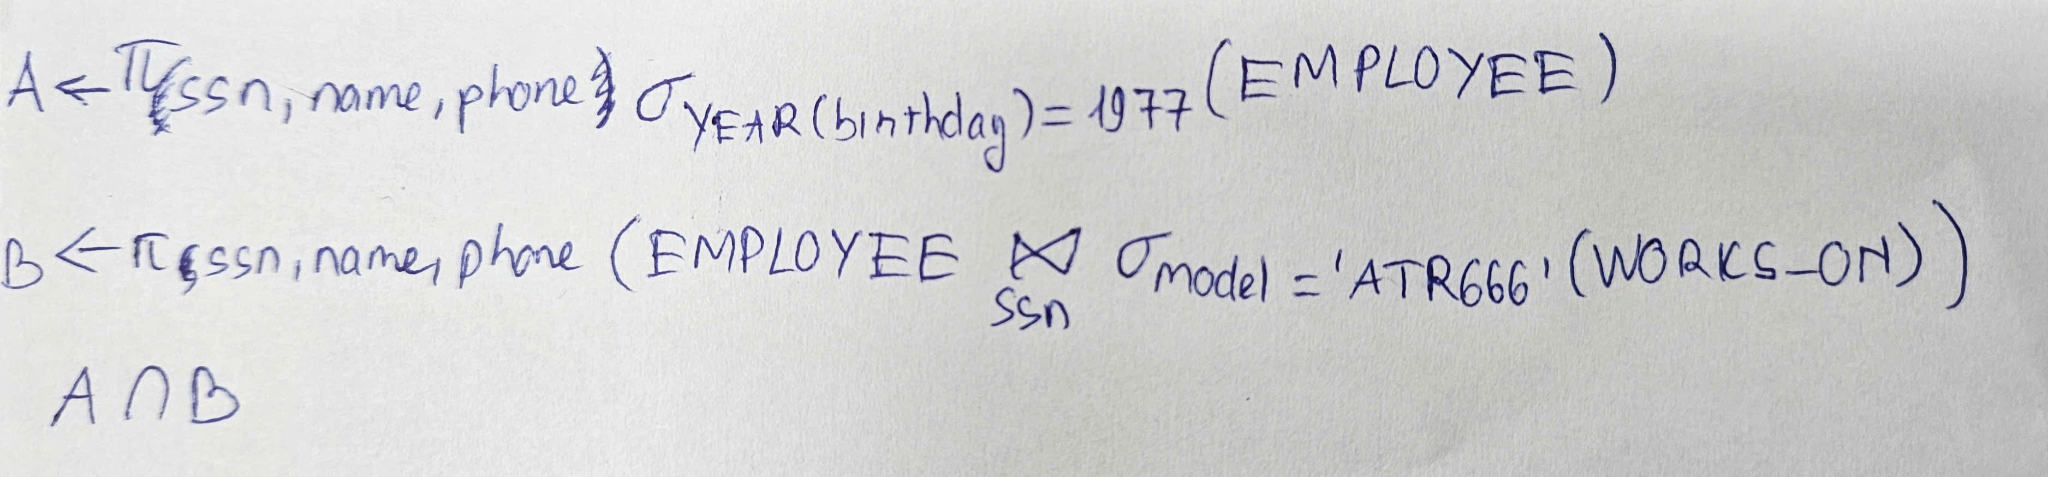 A ← π ssn, name, phone σ YEAR(birthday) = 1977 (EMPLOYEE)
B ← π ssn, name, phone (EMPLOYEE ⋈ ssn σ model = 'ATR666' (WORKS_ON))
A ∩ B